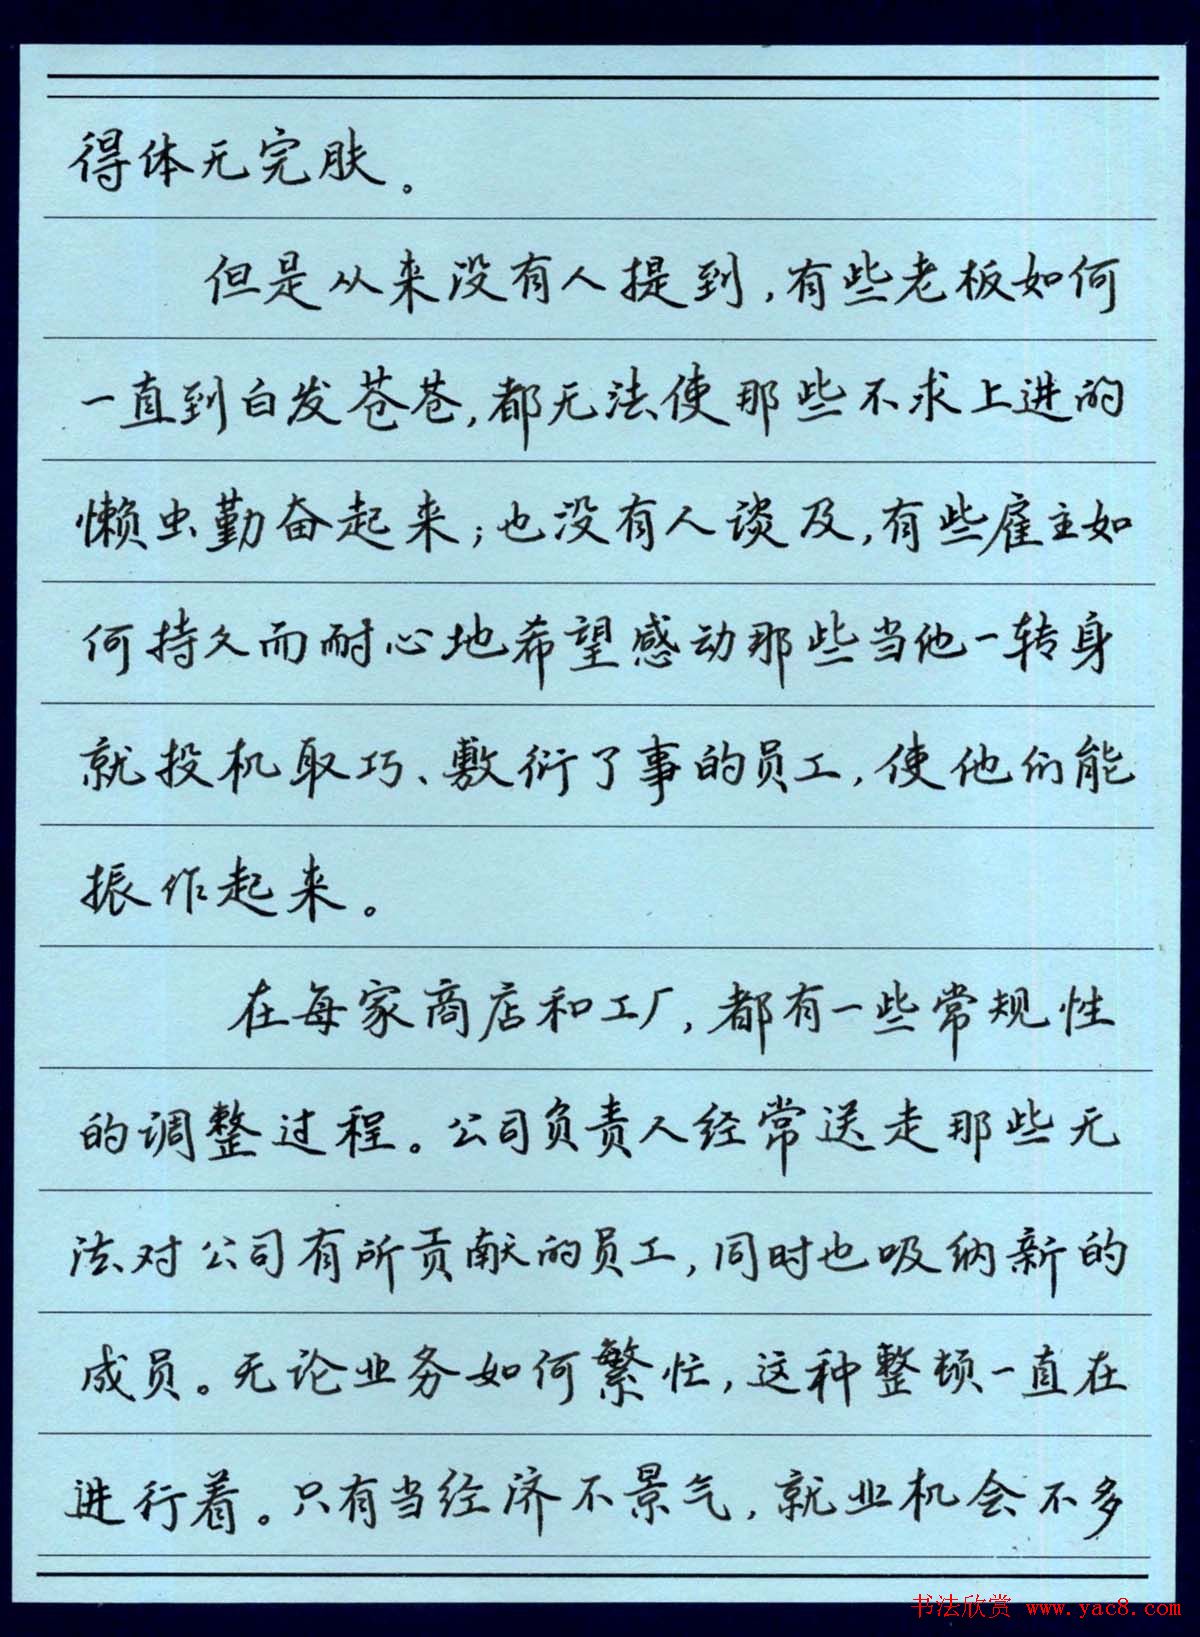 得体无完肤。
但是从来没有人提到,有些老板如何
一直到白发苍苍,都无法使那些不求上进的
懒虫勤奋起来;也没有人谈及,有些雇主如
何持久而耐心地希望感动那些当他一转身
就投机取巧、敷衍了事的员工,使他们能
振作起来。
在每家商店和工厂,都有一些常规性
的调整过程。公司负责人经常送走那些无
法对公司有所贡献的员工,同时也吸纳新的
成员。无论业务如何繁忙,这种整顿一直在
进行着。只有当经济不景气,就业机会不多
书法欣赏 www.yac8.com